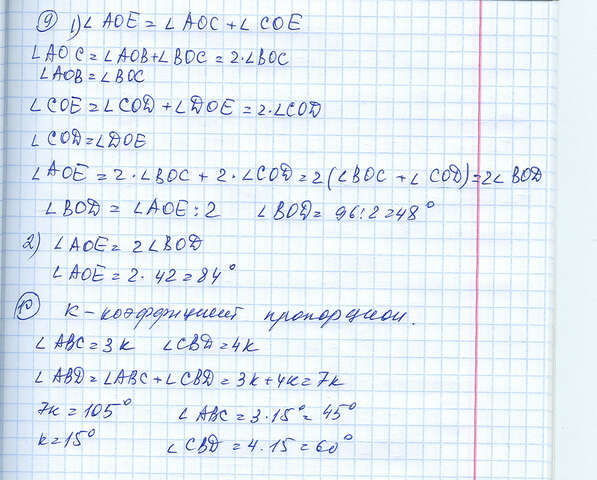 9) 1) ∠AOE = ∠AOC + ∠COE
∠AOC = ∠AOB + ∠BOC = 2·∠BOC
∠AOB = ∠BOC
∠COE = ∠COD + ∠DOE = 2·∠COD
∠COD = ∠DOE
∠AOE = 2·∠BOC + 2·∠COD = 2(∠BOC + ∠COD) = 2∠BOD
∠BOD = ∠AOE : 2 ∠BOD = 96 : 2 = 48°
2) ∠AOE = 2∠BOD
∠AOE = 2·42 = 84°
10) K – коэффициент пропорцион.
∠ABC = 3k ∠CBD = 4k
∠ABD = ∠ABC + ∠CBD = 3k + 4k = 7k
7k = 105° ∠ABC = 3·15° = 45°
k = 15° ∠CBD = 4·15 = 60°